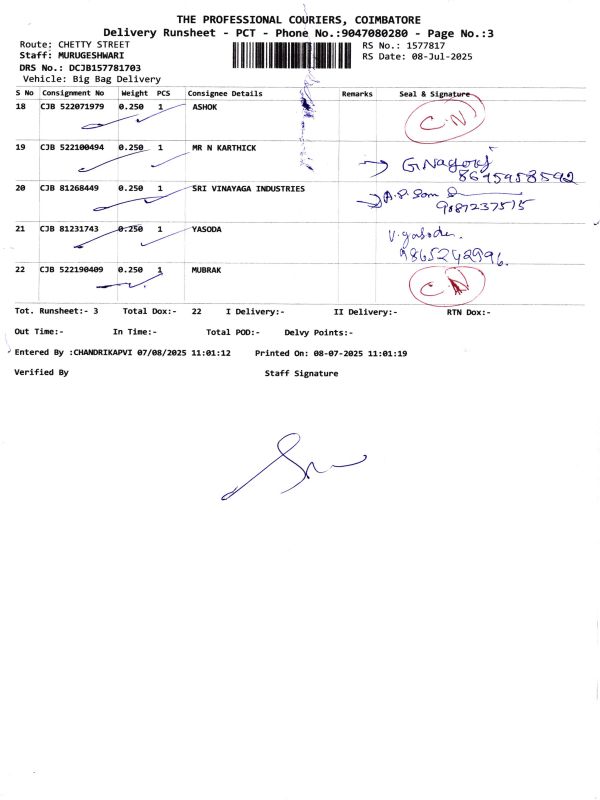 THE PROFESSIONAL COURIERS, COIMBATORE
Delivery Runsheet - PCT - Phone No.:9047080280 - Page No.:3
Route: CHETTY STREET
RS No.: 1577817
Staff: MURUGESHWARI
RS Date: 08-Jul-2025
DRS No.: DCJB157781703
Vehicle: Big Bag Delivery
S No Consignment No Weight PCS Consignee Details Remarks Seal & Signature
18 CJB 522071979 0.250 1 ASHOK
CN
19 CJB 522100494 0.250 1 MR N KARTHICK
8675958592
20 CJB 81268449 0.250 1 SRI VINAYAGA INDUSTRIES
9087237515
21 CJB 81231743 0.250 1 YASODA
V. yasoda.
9865242996.
22 CJB 522190409 0.250 1 MUBRAK
CN
Tot. Runsheet:- 3 Total Dox:- 22 I Delivery:- II Delivery:- RTN Dox:-
Out Time:- In Time:- Total POD:- Delvy Points:-
Entered By :CHANDRIKAPVI 07/08/2025 11:01:12 Printed On: 08-07-2025 11:01:19
Verified By Staff Signature